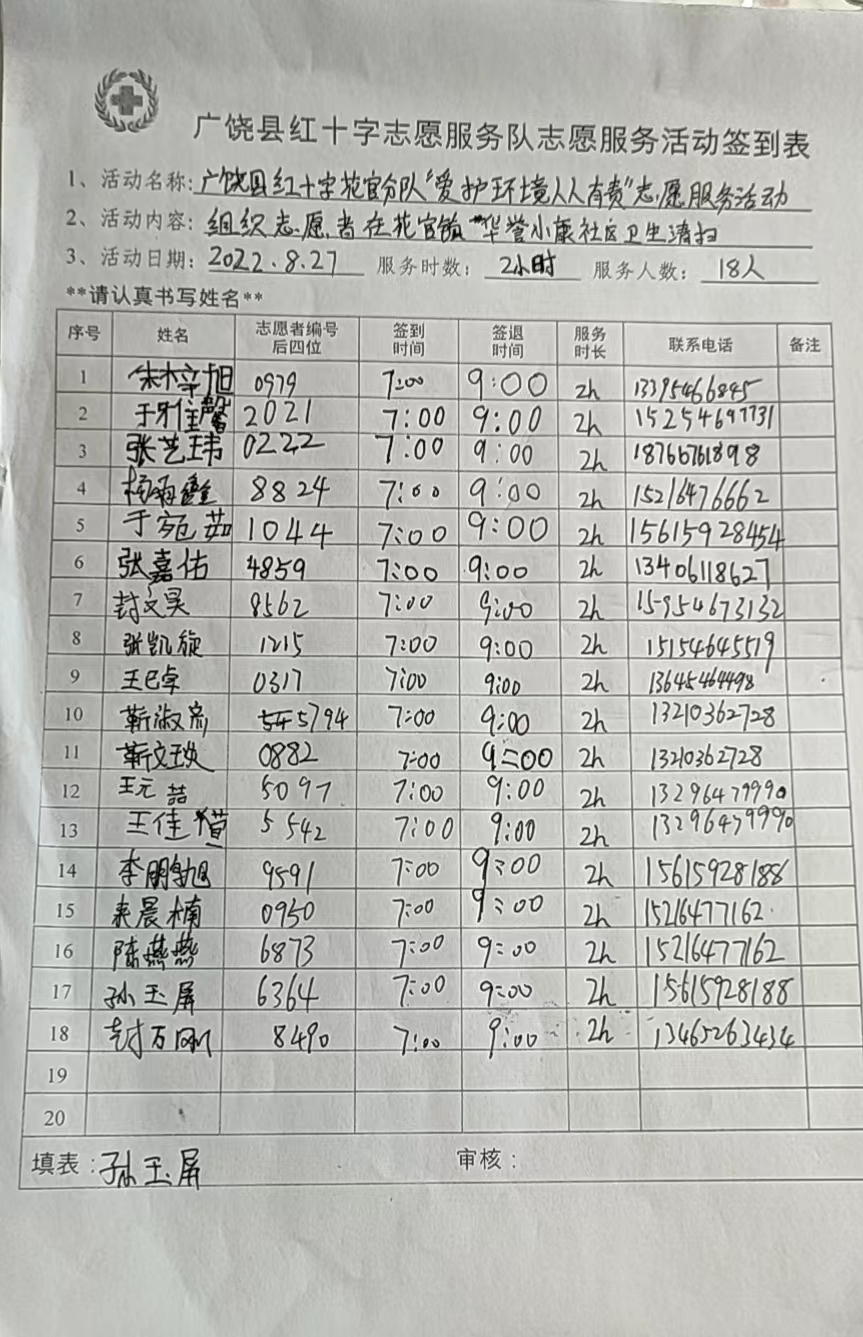 广饶县红十字志愿服务队志愿服务活动签到表
1、活动名称:广饶县红十字花官分队“爱护环境人人有责”志愿服务活动
2、活动内容:组织志愿者在花官镇华誉小康社区卫生清扫
3、活动日期:2022.8.27 服务时数:2小时 服务人数:18人
**请认真书写姓名**
序号 姓名 志愿者编号后四位 签到时间 签退时间 服务时长 联系电话 备注
1 朱梓旭 0979 7:00 9:00 2h 13395466845
2 于雅馨 2021 7:00 9:00 2h 15254697731
3 张艺玮 0222 7:00 9:00 2h 18766761898
4 杨海鑫 8824 7:00 9:00 2h 15216476662
5 于宛茹 1044 7:00 9:00 2h 15615928454
6 张嘉佑 4859 7:00 9:00 2h 13406118627
7 封文昊 8562 7:00 9:00 2h 15954673132
8 张凯旋 1215 7:00 9:00 2h 15154645519
9 王已卓 0317 7:00 9:00 2h 13645464498
10 靳淑 5794 7:00 9:00 2h 13210362728
11 靳文 0882 7:00 9:00 2h 13210362728
12 王元喆 5097 7:00 9:00 2h 13296479990
13 王佳萱 5542 7:00 9:00 2h 13296479990
14 李朋旭 9591 7:00 9:00 2h 15615928188
15 来晨楠 0950 7:00 9:00 2h 15216477162
16 陈燕燕 6873 7:00 9:00 2h 15216477162
17 孙玉屏 6364 7:00 9:00 2h 15615928188
18 封万刚 8490 7:00 9:00 2h 13465263434
19
20
填表:孙玉屏 审核: